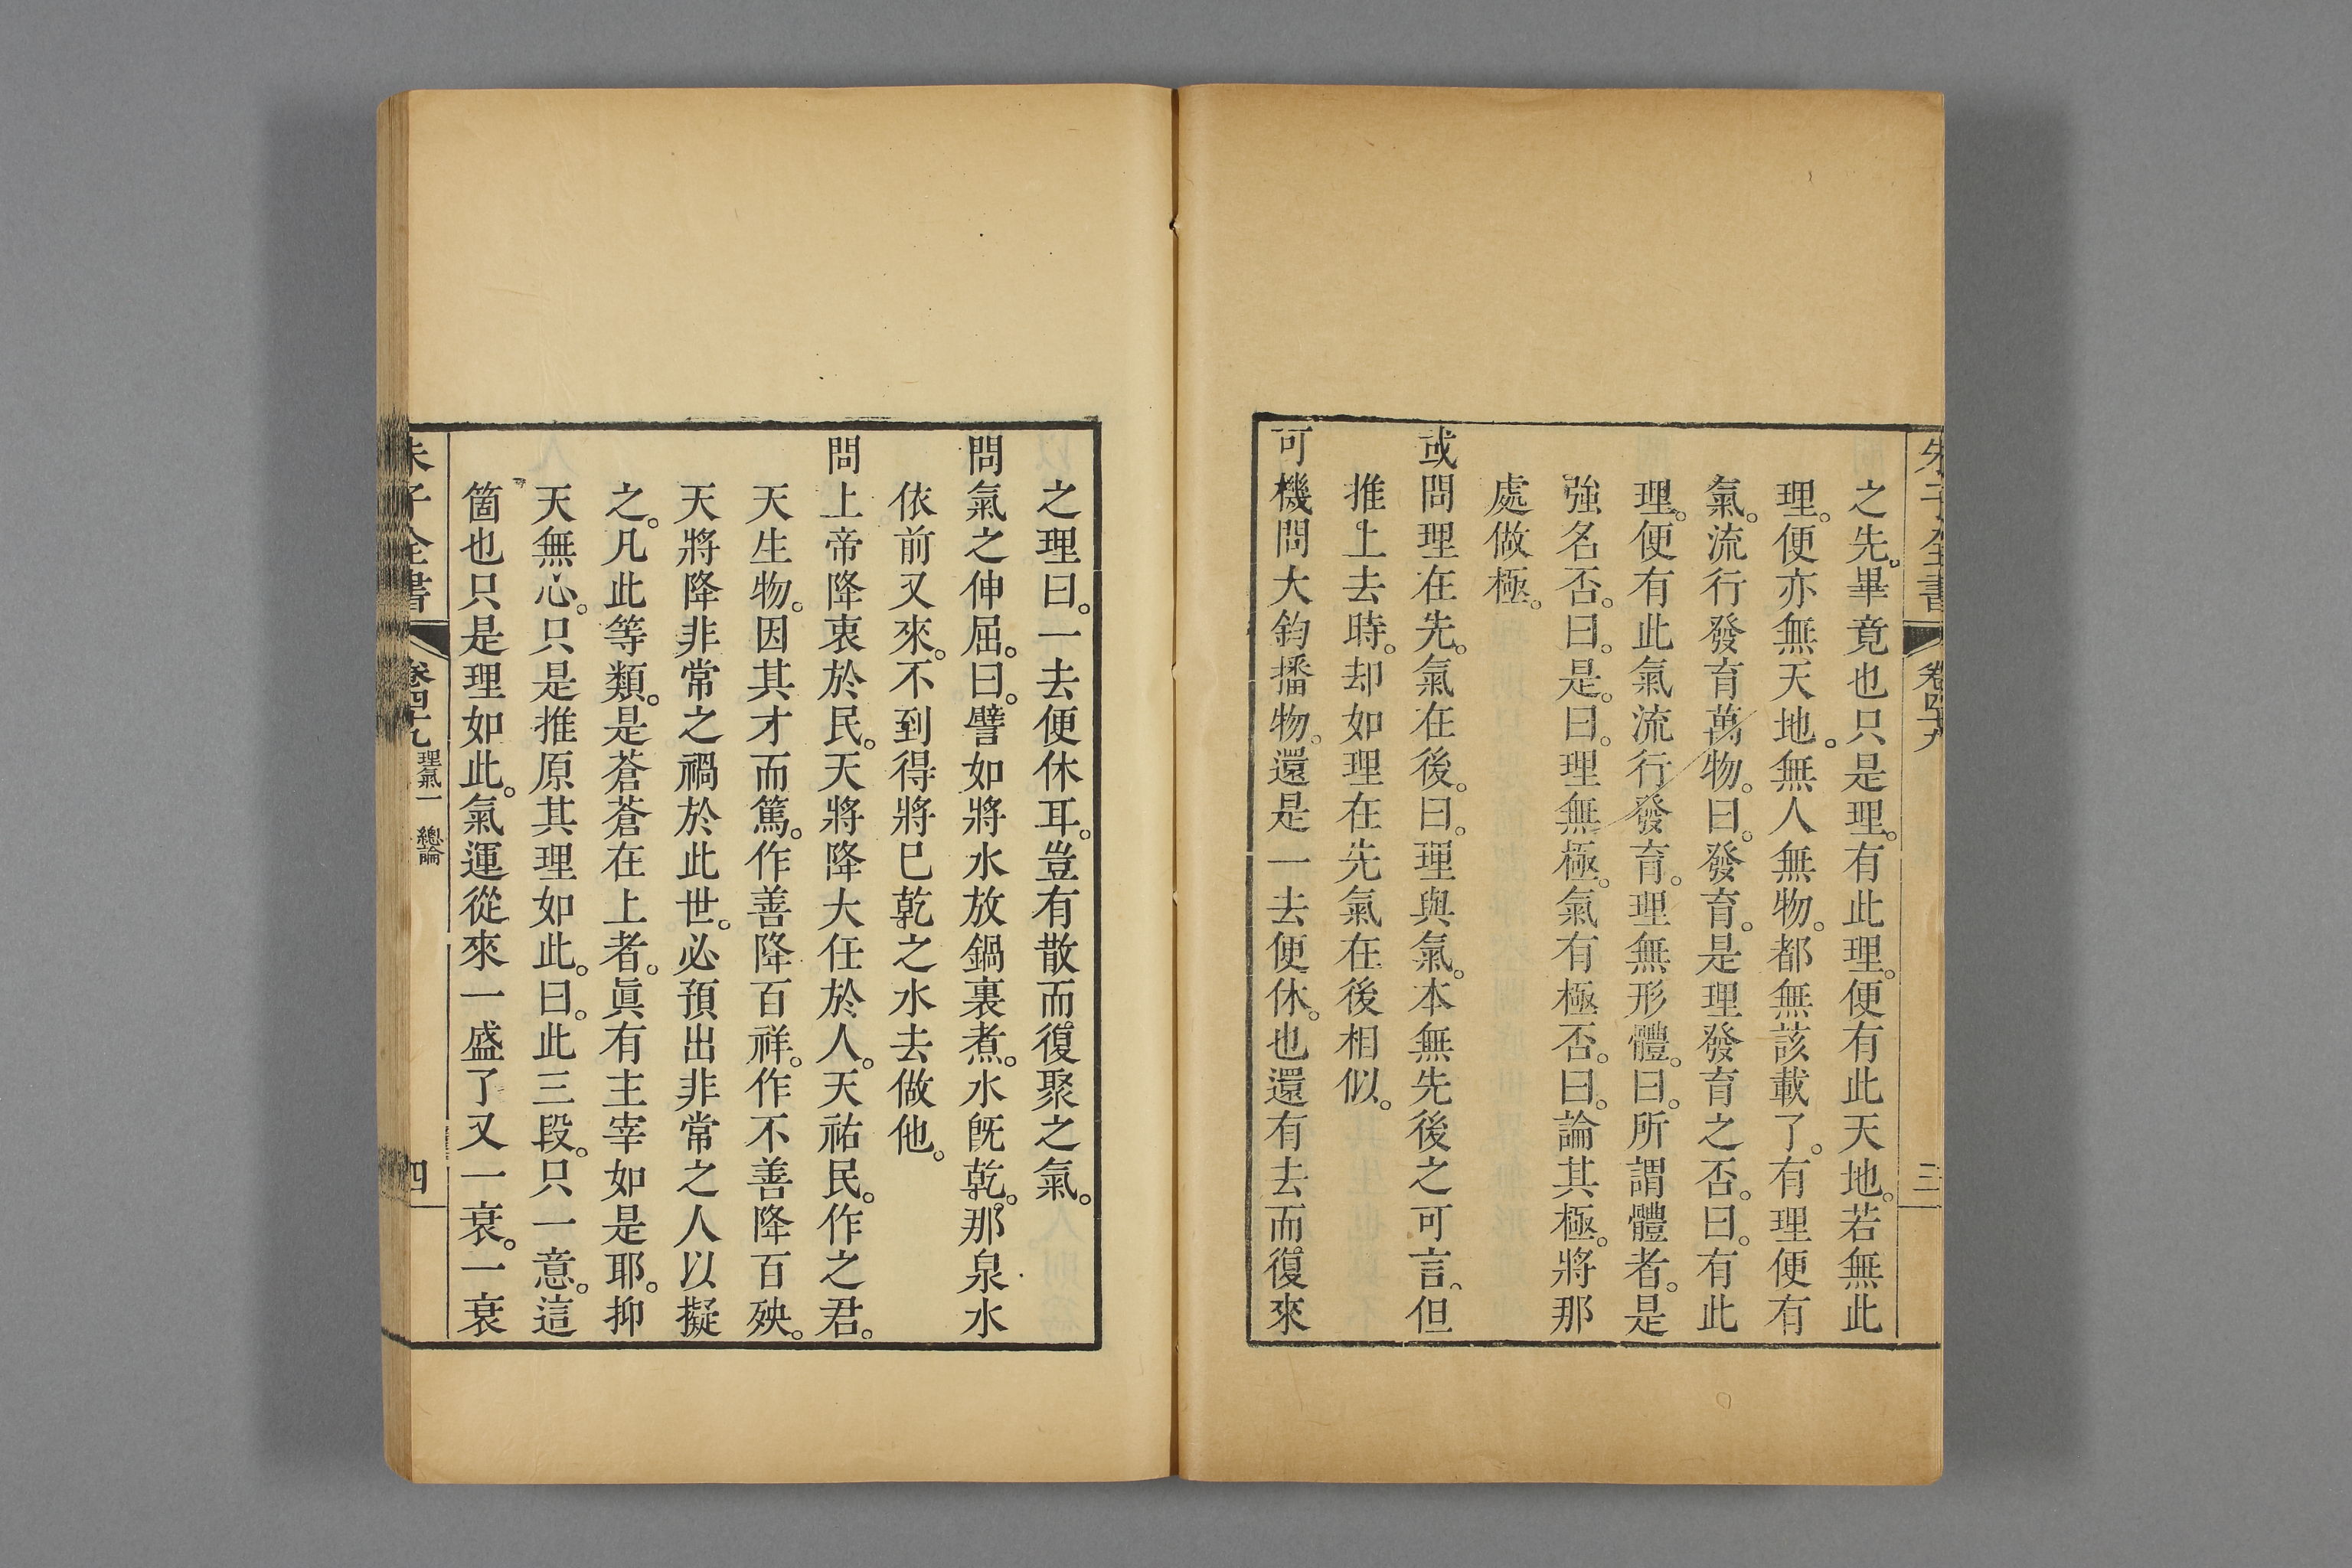 朱子全書 卷四十九 三
之先。畢竟也只是理。有此理。便有此天地。若無此
理。便亦無天地。無人無物。都無該載了。有理便有
氣。流行發育萬物。曰。發育。是理發育之否。曰。有此
理。便有此氣流行發育。理無形體。曰。所謂體者。是
強名否。曰。是。曰。理無極。氣有極否。曰。論其極。將那
處做極。
或問理在先。氣在後。曰。理與氣。本無先後之可言。但
推上去時。却如理在先氣在後相似。
可機問大鈞播物。還是一去便休。也還有去而復來
之理曰。一去便休耳。豈有散而復聚之氣。
問氣之伸屈。曰。譬如將水放鍋裏煮。水旣乾。那泉水
依前又來。不到得將已乾之水去做他。
問上帝降衷於民。天將降大任於人。天祐民。作之君。
天生物。因其才而篤。作善降百祥。作不善降百殃。
天將降非常之禍於此世。必預出非常之人以擬
之。凡此等類。是蒼蒼在上者。眞有主宰如是耶。抑
天無心。只是推原其理如此。曰。此三段。只一意。這
箇也只是理如此。氣運從來一盛了又一衰。一衰
朱子全書 卷四十九 理氣一 總論 四